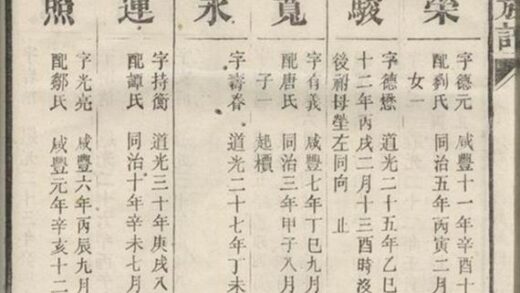 族譜
榮
字德元 咸豐十一年辛酉十
配劉氏 同治五年丙寅二月
女一
駿
字德懋 道光二十五年乙巳
十二年丙戌二月十三酉時沒
後祔母塋左同向 止
寬
字有義 咸豐七年丁巳九月
配唐氏 同治三年甲子八月
子一 起價
永
字壽春 道光二十七年丁未
運
字持衡 道光三十年庚戌八
配譚氏 同治十年辛未七月
照
字光亮 咸豐六年丙辰九月
配鄒氏 咸豐元年辛亥十二